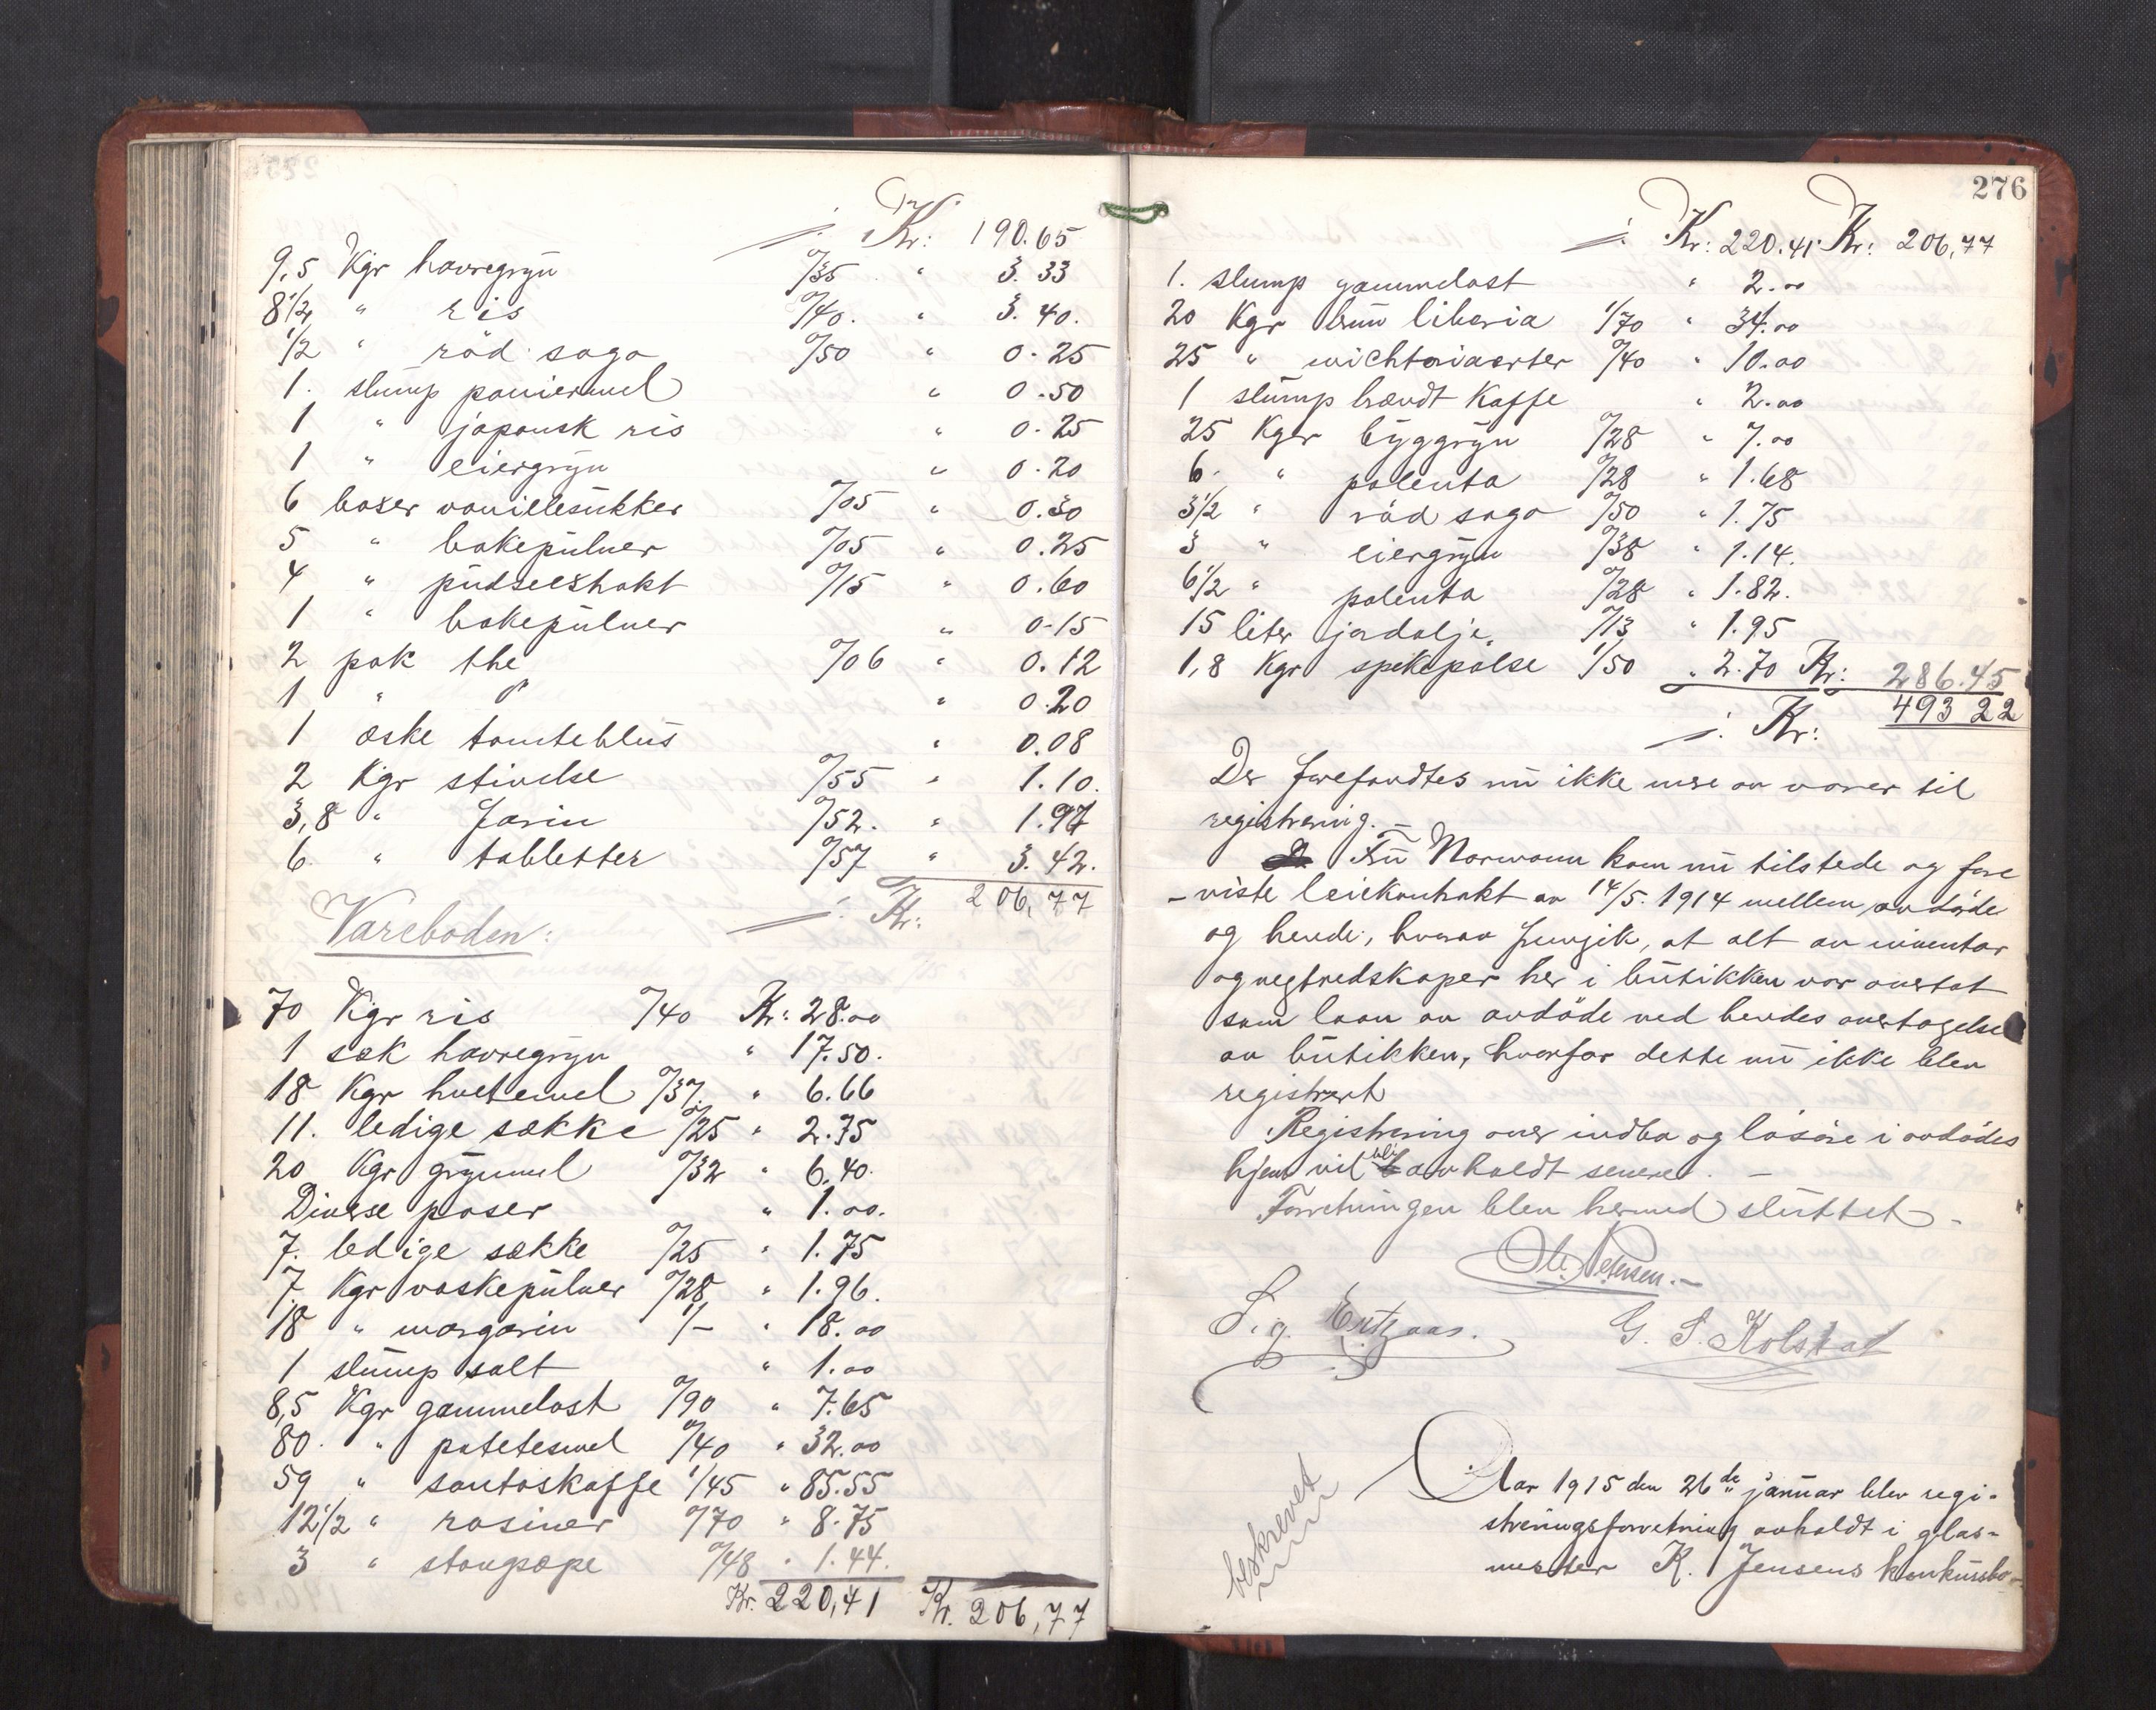 ./. Kr: 190.65
9,5 Kgr havregryn 0/35 " 3.33
8 1/2 " ris 0/40. " 3.40.
1/2 " röd sago 0/50 " 0.25
1. slump paniermel " 0.50
1 " japansk ris " 0.25
1 " eiergryn " 0.20
6 boser vanillesukker 0/05 " 0.30
5 " bakepulver 0/05 " 0.25
4 " pudseekstrakt 0/15 " 0.60
1 " bakepulver " 0.15
2 pak the 0/06 " 0.12
1 " " " 0.20
1 æske tomteblus " 0.08
2 Kgr stivelse 0/55 " 1.10.
3,8 " farin 0/52. " 1.97
6. " tabletter 0/57 " 3.42.
./. Kr: 206,77
Vareboden:
70 Kgr ris 0/40 Kr: 28.00
1 sæk havregryn " 17.50.
18 Kgr hvetemel 0/37. " 6.66
11. ledige sække 0/25 " 2.75
20 Kgr grynmel 0/32 " 6.40.
Diverse poser " 1.00.
7. ledige sække 0/25 " 1.75
7. Kgr vaskepulver 0/28 " 1.96.
18 " margarin 1/- " 18.00
1 slump salt " 1.00
8,5 Kgr gammelost 0/90 " 7.65
80. " potetesmel 0/40 " 32.00
59 " santoskaffe 1/45 " 85.55
12 1/2 " rosiner 0/70 " 8.75
3 " stangsæpe 0/48 " 1.44.
Kr. 220,41 Kr. 206,77
276
./. Kr: 220.41 Kr: 206,77
1. slump gammelost " 2.00
20 Kgr brun liberia 1/70 " 34.00
25 " wichtoriaerter 0/40 " 10.00
1 slump brændt kaffe " 2.00
25 Kgr byggryn 0/28 " 7.00
6. " polenta 0/28 " 1.68
3 1/2 " röd sago 0/50 " 1.75
3 " eiergryn 0/38 " 1.14.
6 1/2 " polenta 0/28 " 1.82.
15 liter jordolje. 0/13 " 1.95
1,8 Kgr spekepölse 1/50 " 2.70 Kr: 286.45
./. Kr: 493 22
Der forefandtes nu ikke mere av varer til
registrering. -
Fru Normann kom nu tilstede og fore
- viste leiekontrakt av 14/5. 1914 mellem avdöde
og hende, hvorav fremgik, at alt av inventar
og vegtredskaper her i butikken var overtat
som laan av avdöde ved hendes overtagelse
av butikken, hvorfor dette nu ikke blev
registrert
Registrering over indbo og lösöre i avdödes
hjem vil bli avholdt senere. -
Forretningen blev hermed sluttet -
Ole Petersen. -
Sig. G. S. Kolstad
beskrevet
Aar 1915 den 26de januar blev regi-
streringsforretning avholdt i glas-
mester K. Jensens konkursbo -